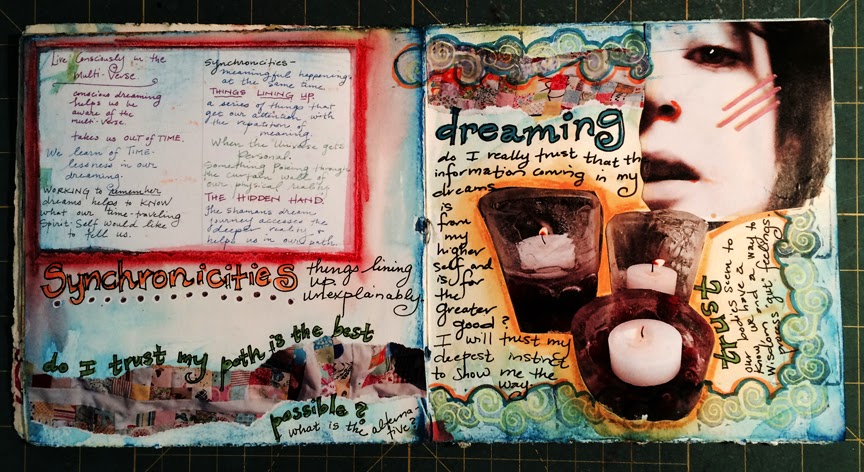 Live Consciously in the
multi-verse
conscious dreaming
helps us be
aware of the
multi-verse
takes us OUT of TIME.
We learn of TIME-
lessness in our
dreaming.
WORKING to remember
dreams helps to KNOW
what our time-traveling
Spirit Self would like
to tell us.
Synchronicities-
meaningful happenings
at the same time
THINGS LINING UP.
a series of things that
get our attention with
the repetition of
meaning.
When the Universe gets
Personal.
Something Poking through
the curtain wall of
our physical reality
THE HIDDEN HAND.
The shamans dream
journey accesses the
deeper reality &
helps us in our path.
Synchronicities
things lining
up
unexplainably.
do I trust my path is the best
possible?
what is the alterna-
tive?
dreaming
do I really trust that th
information coming in my
dreams
is
from
my
higher
self and
is for
the
greater
good?
I will trust my
deepest instinct
to show me the
way.
trust
our bodies seem to
know we had a
wisdom we had a way to
process "gut" feelings.